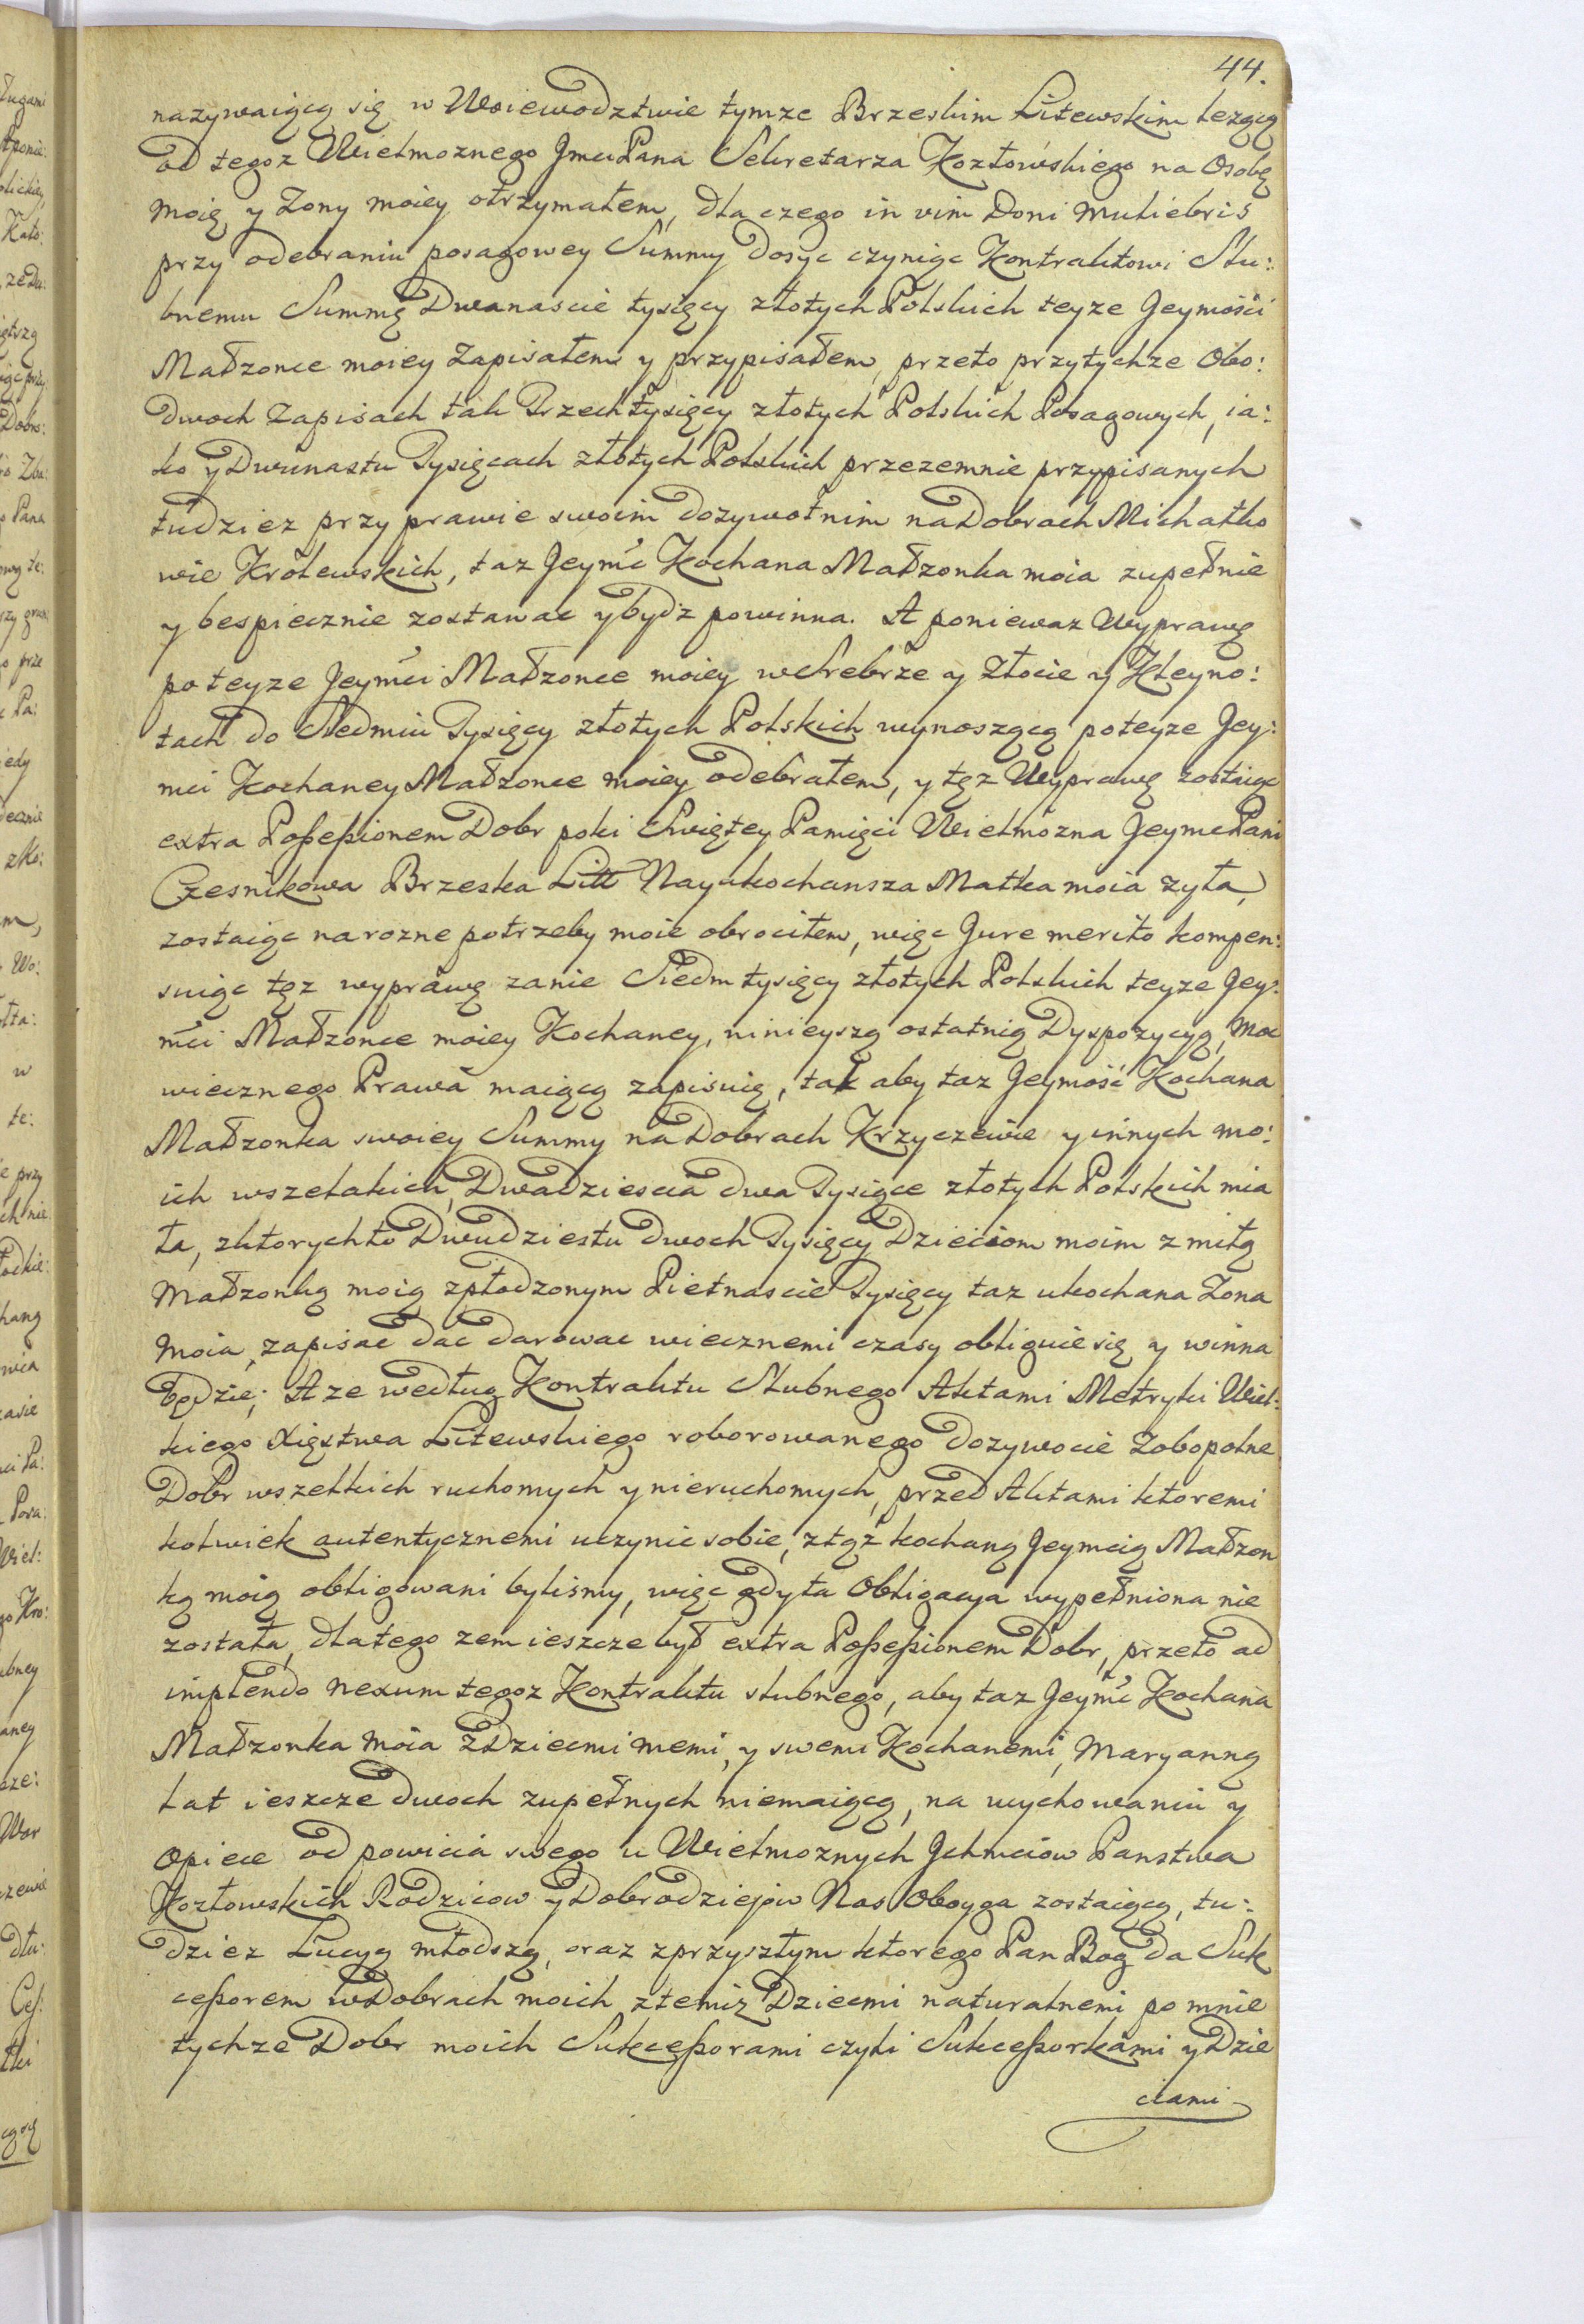 44.
nazywaiącą się w Woiewodztwie tymze Brzeskim Litewskim leżącą
od tegoz Wielmoznego Jmci Pana Sekretarza Kozłowskiego na Osobę
moię y Zony moiey otrzymałem, dla czego in vim Doni muliebris
przy odebraniu posagowey Summy dosyc czyniąc Kontraktowi Slu:
bnemu Summę Dwanascie tysięcy złotych Polskich teyze Jeymości
Małzonce moiey Zapisałem y przypisałem, przeto przytychze Obo:
dwoch Zapisach tak Trzech tysięcy złotych Polskich Posagowych, ia:
ko y Dwunastu Tysiącach złotych Polskich przezemnie przypisanych
tudziez przy prawie swoim dozywotnim na Dobrach Michałko
wie Królewskich, taz Jeymć Kochana Małzonka moia zupełnie
y bespiecznie zostawac y bydz powinna. A poniewaz Wyprawę
po teyze Jeymci Małzonce moiey w Srebrze y Złocie y Kleyno:
tach do Siedmiu Tysięcy złotych Polskich wynoszącą po teyze Jey:
mci Kochaney Małzonce moiey odebrałem, y tęz Wyprawę zostaiąc
extra Poßeßionem Dobr poki Swiętey Pamięci Wielmożna Jeymc Pani
Czesnikowa Brzeska Litt Nayukochansza Matka moia zyła,
zostaiąc na rozne potrzeby moie obrociłem, więc Jure merito kompen:
suiąc tęz wyprawę zanie Siedm tysięcy złotych Polskich teyze Jey:
mci Małzonce moiey Kochaney, ninieyszą ostatnią Dyspozycyą, moc
wiecznego Prawa maiącą zapisuię, tak aby taz Jeymość Kochana
Małzonka swoiey Summy na Dobrach Krzyczewie y innych mo:
ich wszelakich, Dwadziescia dwa Tysiące złotych Polskich mia
ła, z ktorych to Dwudziestu dwoch Tysięcy Dzieciom moim z miłą
Małzonką moią zpłodzonym Pietnascie Tysięcy taz ukochana Zona
moia, zapisac dac darowac wiecznemi czasy obliguie się y winna
będzie; A ze według Kontraktu Slubnego Aktami Metryki Wiel:
kiego Xięstwa Litewskiego roborowanego dozywocie Zobopolne
Dobr wszelkich ruchomych y nieruchomych, przed Aktami ktoremi
kolwiek autentycznemi uczynic sobie, z tąz kochaną Jeymcią Małzon
ką moią obligowani bylismy, więc gdy ta Obligacya wypełniona nie
została, dlatego zem ieszcze był extra Poßeßionem Dobr, przeto ad
implendo nexum tegoz Kontraktu slubnego, aby taz Jeymć Kochana
Małzonka moia z Dziecmi memi, y swemi Kochanemi, Maryanną
lat ieszcze dwoch zupełnych niemaiącą, na wychowaniu y
opiece od powicia swego u Wielmoznych Jchmciow Panstwa
Kozłowskich Rodzicow y Dobrodziejow Nas Oboyga zostaiącą, tu:
dziez Lucyą młodszą, oraz z przyszłym ktorego Pan Bog da Suk
ceßorem w Dobrach moich z temiz Dziecmi naturalnemi po mnie
tychze Dobr moich Sukceßorami czyli Sukceßorkami y Dzie
ciami